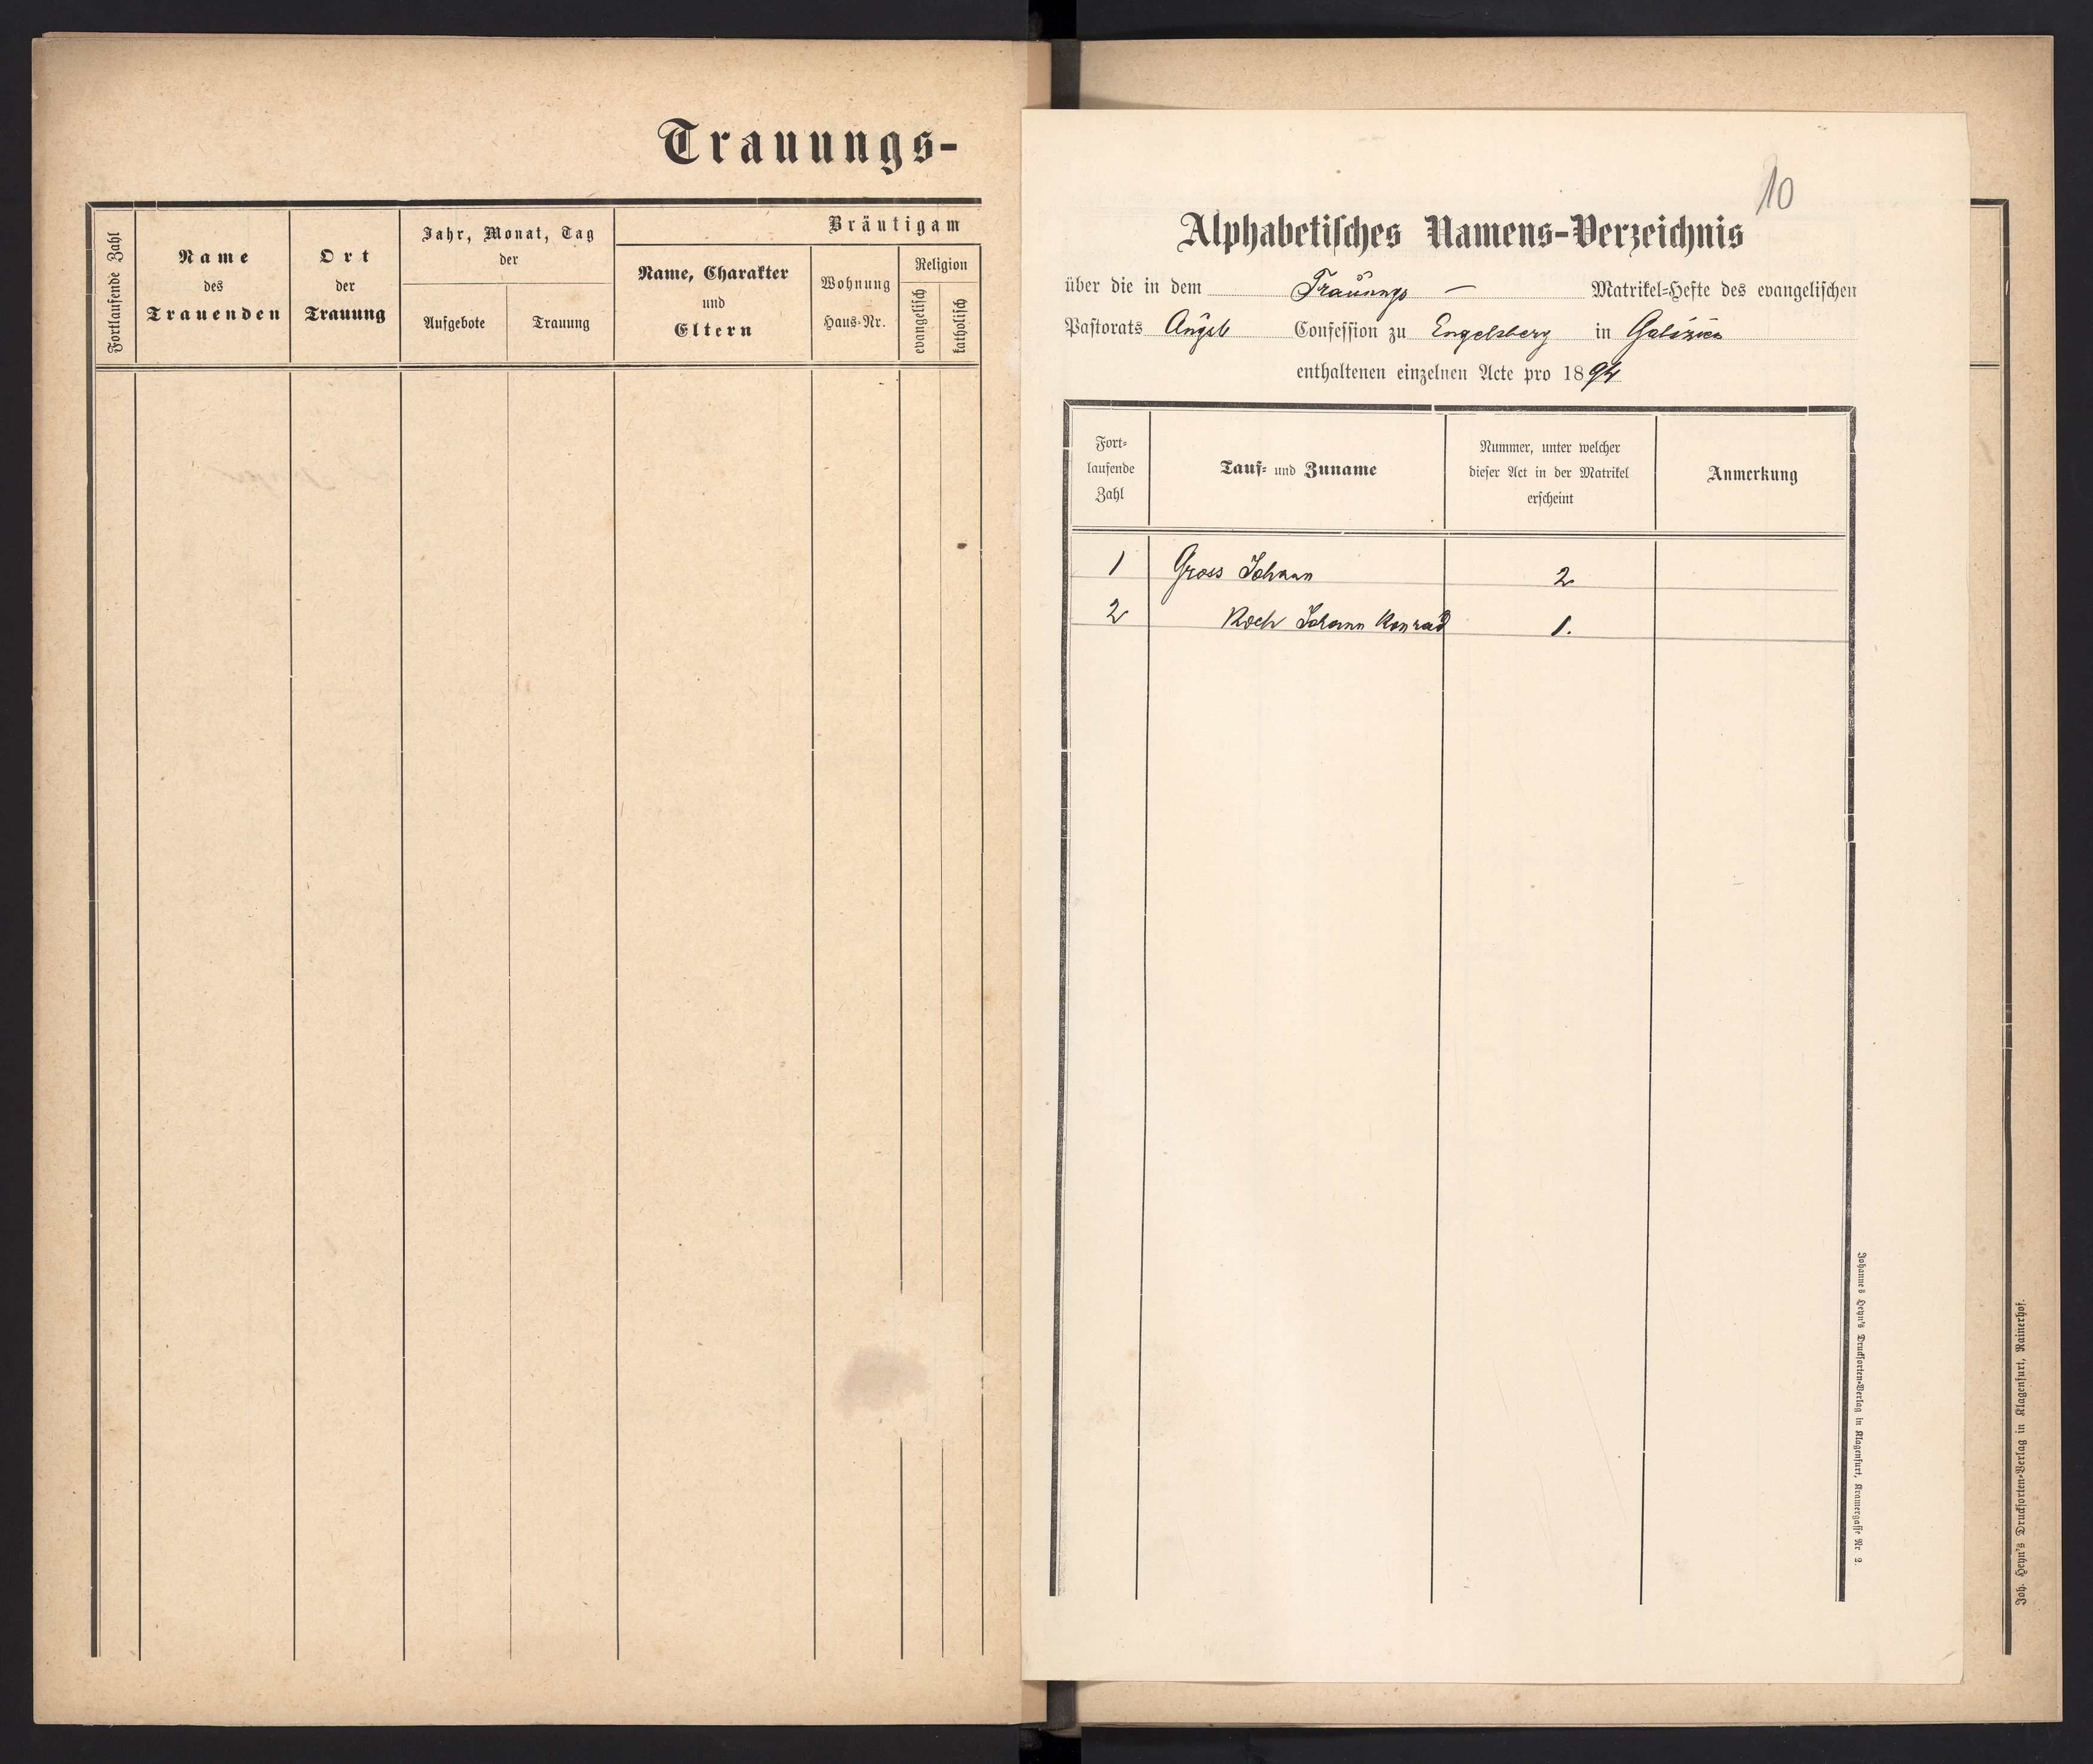 Trauungs-
Fortlaufende Zahl
Name
des
Trauenden
Ort
der
Trauung
Jahr, Monat, Tag
der
Aufgebote
Trauung
Bräutigam
Name, Charakter
und
Eltern
Wohnung
Haus-Nr.
Religion
evangelisch
katholisch
10
Alphabetisches Namens-Verzeichnis
über die in dem Trauungs — Matrikel-Hefte des evangelischen
Pastorats Augsb Confession zu Engelsberg in Galizien
enthaltenen einzelnen Acte pro 1894
Fort-
laufende
Zahl
Tauf- und Zuname
Nummer, unter welcher
dieser Act in der Matrikel
erscheint
Anmerkung
1 Gross Johann 2
2 Koch Johann Konrad 1.
Johannes Heyn's Drucksorten-Verlag in Klagenfurt, Kramergasse Nr. 2.
Joh. Heyn's Drucksorten-Verlag in Klagenfurt, Rainerhof.